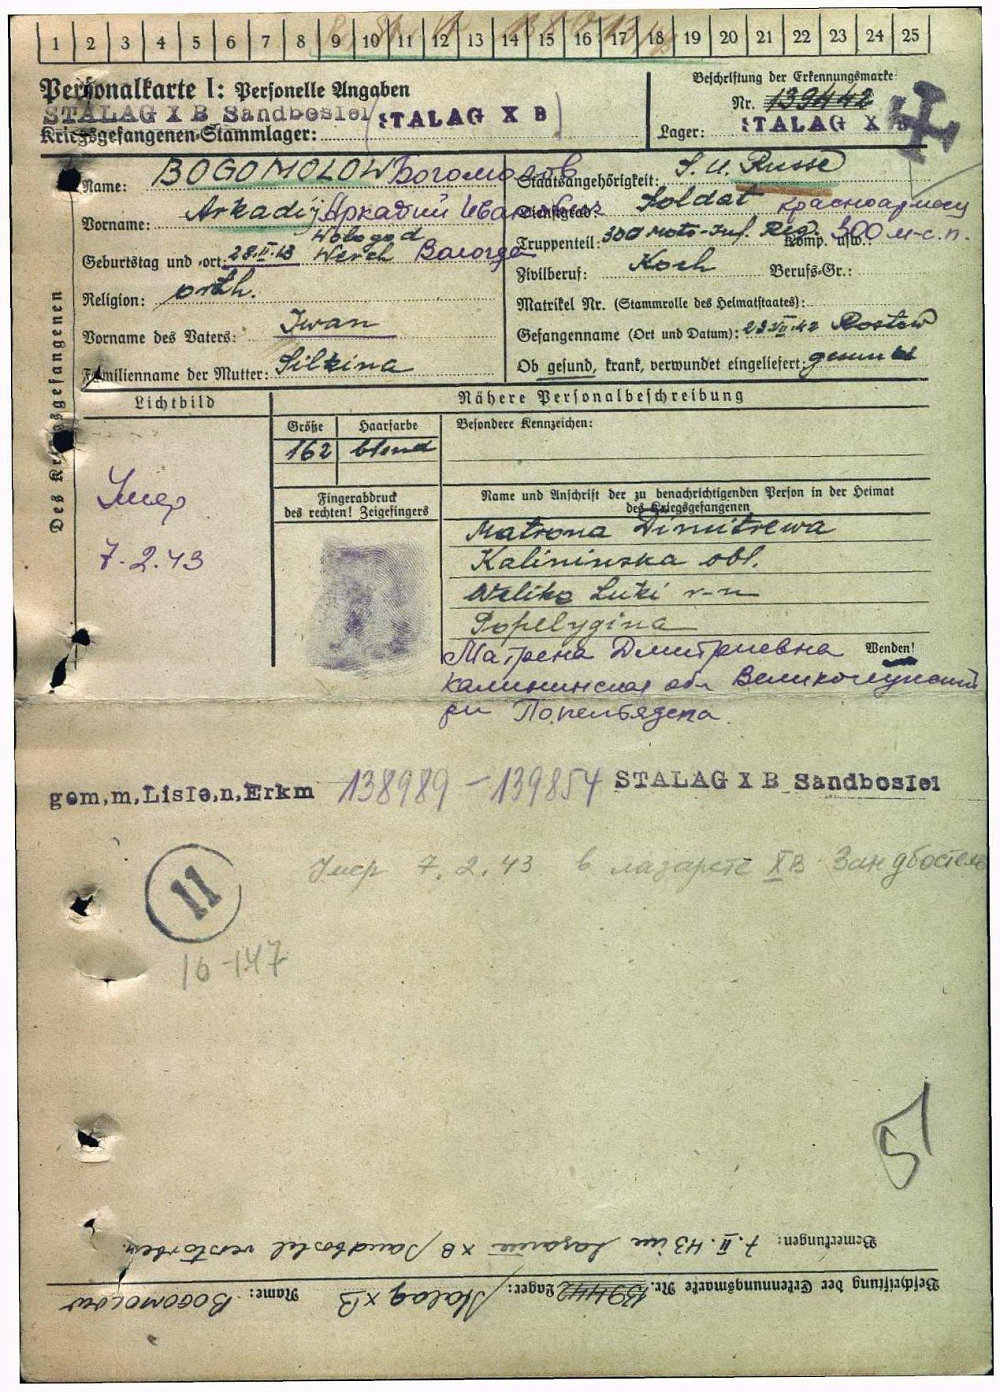 1 2 3 4 5 6 7 8 9 10 11 12 13 14 15 16 17 18 19 20 21 22 23 24 25
Personalkarte I: Personelle Angaben
Beschriftung der Erkennungsmarke:
STALAG X B Sandbostel STALAG X B
Nr. 139442
Kriegsgefangenen-Stammlager:
Lager: STALAG X B
Des Kriegsgefangenen
Name: BOGOMOLOW Богомолов
Staatsangehörigkeit: S. U. Russe
Vorname: Arkadij Аркадий Иванович
Dienstgrad: Soldat красноармеец
Wologod
Truppenteil: 300 Moto-Inf. Reg. Komp. usw.: 300 м-с.п.
Geburtstag und -ort: 28.II.13 Werch Вологда
Zivilberuf: Koch Berufs-Gr.:
Religion: orth.
Matrikel Nr. (Stammrolle des Heimatstaates):
Vorname des Vaters: Iwan
Gefangenname (Ort und Datum): 23.VII.42 Rostow
Familienname der Mutter: Silkina
Ob gesund, krank, verwundet eingeliefert: gesund
Lichtbild
Nähere Personalbeschreibung
Größe Haarfarbe Besondere Kennzeichen:
162 blond
Умер
7.2.43
Fingerabdruck
des rechten! Zeigefingers
Name und Anschrift der zu benachrichtigenden Person in der Heimat
des Kriegsgefangenen
Matrona Dimitrewa
Kalininska obl.
Weliko Luki r-n
Popelygina
Матрена Дмитриевна
Wenden!
калининская обл Великолукский
рн
gem,m,Liste,n,Erkm 138989 - 139854 STALAG X B Sandbostel
11
Умер 7.2.43 в лазарете XB Зандбостель
16-147
5
Bemerkungen: 7.II.43 im Lazarett XB Sandbostel verstorben
Beschriftung der Erkennungsmarke Nr. 139442 Lager: Stalag XB Name: BOGOMOLOW